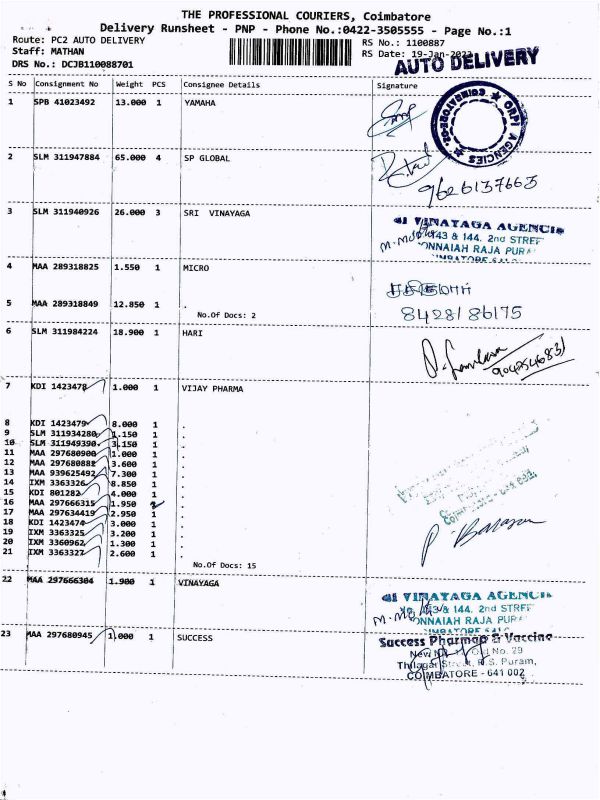 THE PROFESSIONAL COURIERS, Coimbatore
Delivery Runsheet - PNP - Phone No.:0422-3505555 - Page No.:1
Route: PC2 AUTO DELIVERY
RS No.: 1100887
Staff: MATHAN
RS Date: 19-Jan-2023
DRS No.: DCJB110088701
AUTO DELIVERY
S No Consignment No Weight PCS Consignee Details Signature
1 SPB 41023492 13.000 1 YAMAHA
ORPI AGENCIES
2 SLM 311947884 65.000 4 SP GLOBAL
9626137663
3 SLM 311940926 26.000 3 SRI VINAYAGA
VINAYAGA AGENCIE
143 & 144. 2nd STREE
PONNAIAH RAJA PURA
4 MAA 289318825 1.550 1 MICRO
5 MAA 289318849 12.850 1 .
8428186175
No.Of Docs: 2
6 SLM 311984224 18.900 1 HARI
9042546831
7 KDI 1423478 1.000 1 VIJAY PHARMA
8 KDI 1423479 8.000 1 .
9 SLM 311934280 1.150 1 .
10 SLM 311949390 3.150 1 .
11 MAA 297680900 1.000 1 .
12 MAA 297680881 3.600 1 .
13 MAA 939625492 7.300 1 .
14 IXM 3363326 8.850 1 .
15 KDI 801282 4.000 1 .
16 MAA 297666315 1.950 2 .
17 MAA 297634419 2.950 1 .
18 KDI 1423474 3.000 1 .
19 IXM 3363325 3.200 1 .
20 IXM 3360962 1.300 1 .
21 IXM 3363327 2.600 1 .
No.Of Docs: 15
22 MAA 297666304 1.900 1 VINAYAGA
VINAYAGA AGENCIE
143 & 144. 2nd STREE
PONNAIAH RAJA PURA
23 MAA 297680945 1.000 1 SUCCESS
Success Pharmap & Vaccine
New No. Old No. 29
Thilagar Street, R.S. Puram,
COIMBATORE - 641 002